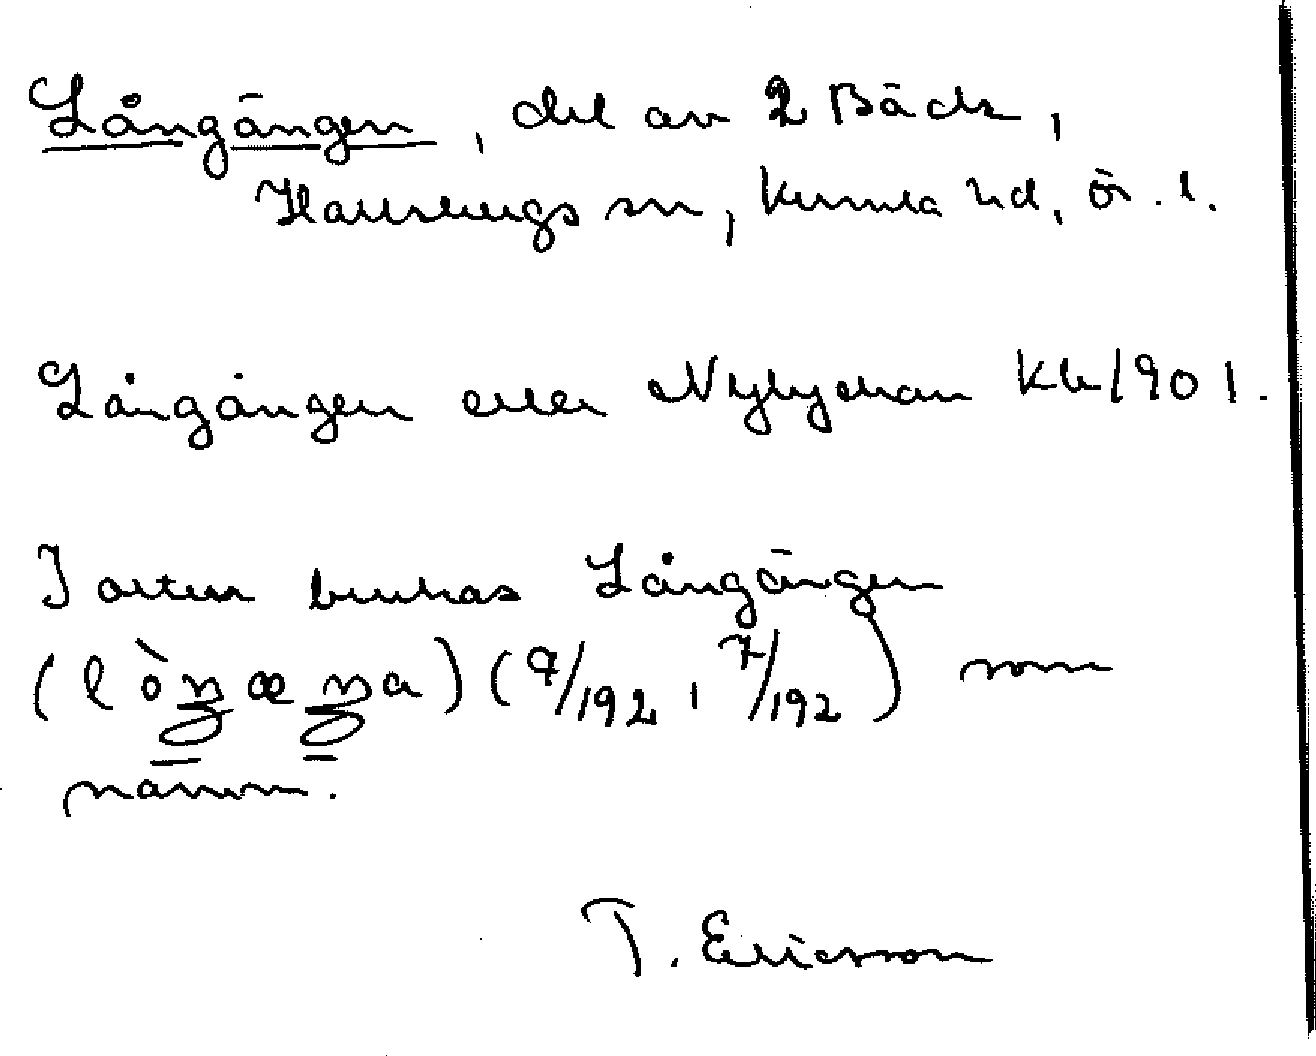 Långängen, del av 2 Bäck,
Hallsbergs sn, Kumla hd, Ör. l.
Långängen eller Nylyckan Kk 1901.
I orten brukas Långängen
(lòŋæŋa) (9/192, 7/192) som
namn.
T. Ericsson